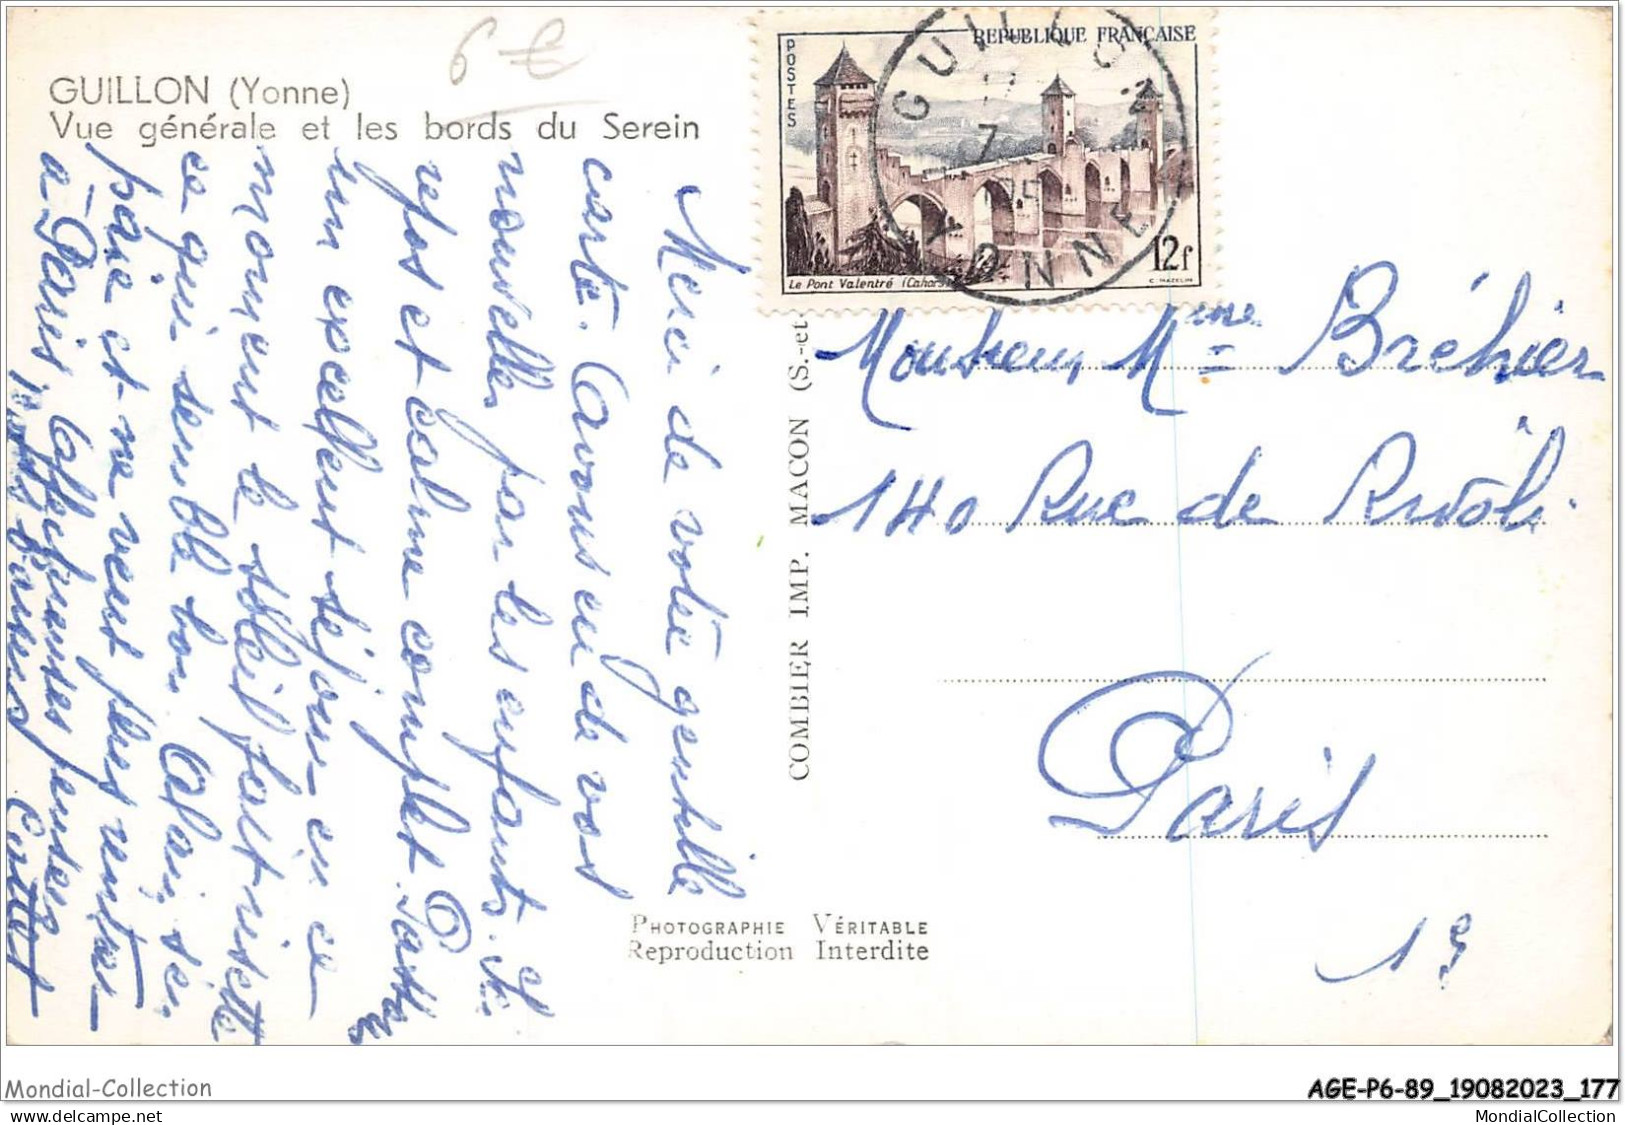 6 €
GUILLON (Yonne)
Vue générale et les bords du Serein
Merci de votre gentille
carte. Avons eu de vos
nouvelles par les enfants. Ici
repos et calme complet. Passons
un excellent séjour en ce
moment le soleil fait risette
ce qui semble bon. Alain sera
paie et ne veut plus rentrer
à Paris. Affectueuses pensées
COMBIER IMP. MACON (S.-et-
PHOTOGRAPHIE VÉRITABLE
Reproduction Interdite
POSTES
REPUBLIQUE FRANÇAISE
12f
Le Pont Valentré (Cahors)
C. MAZELIN
GUILLON
7
YONNE
Monsieur Mme Bréhier
140 Rue de Rivoli
Paris
Mondial-Collection
AGE-P6-89_19082023_177
www.delcampe.net
MondialCollection